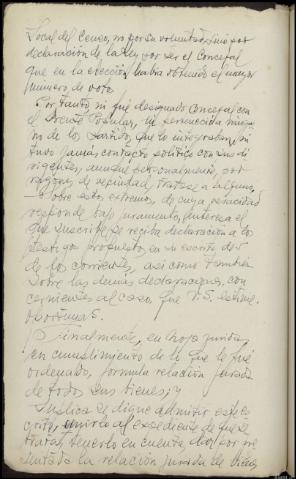 Local del Censo, no por su voluntad, sino por
declaración de la Ley por ser el Concejal
que en la elección había obtenido el mayor
número de votos.
Por tanto ni fué designado Concejal con
el Frente Popular, ni pertenecía a ninguno
de los partidos que lo integraban, ni
tuvo jamás contacto político con sus di-
rigentes, aunque personalmente, por
razones de vecindad, tratase a algunos.
— Sobre estos extremos, de cuya veracidad
responde bajo juramento, interesa el
que suscribe se reciba declaración a los
testigos propuestos en su escrito de 5
de los corrientes, así como también
sobre las demás declaraciones, con
cernientes al caso, que V.S. estime
oportunas.
Finalmente, en hoja junta,
en cumplimiento de lo que le fué
ordenado, formula relación jurada
de todos sus bienes, y
Suplica se digne admitir este es
crito, unirlo al expediente de que se
trata, tenerlo en cuenta, dar por pre
sentada la relación jurada de bienes